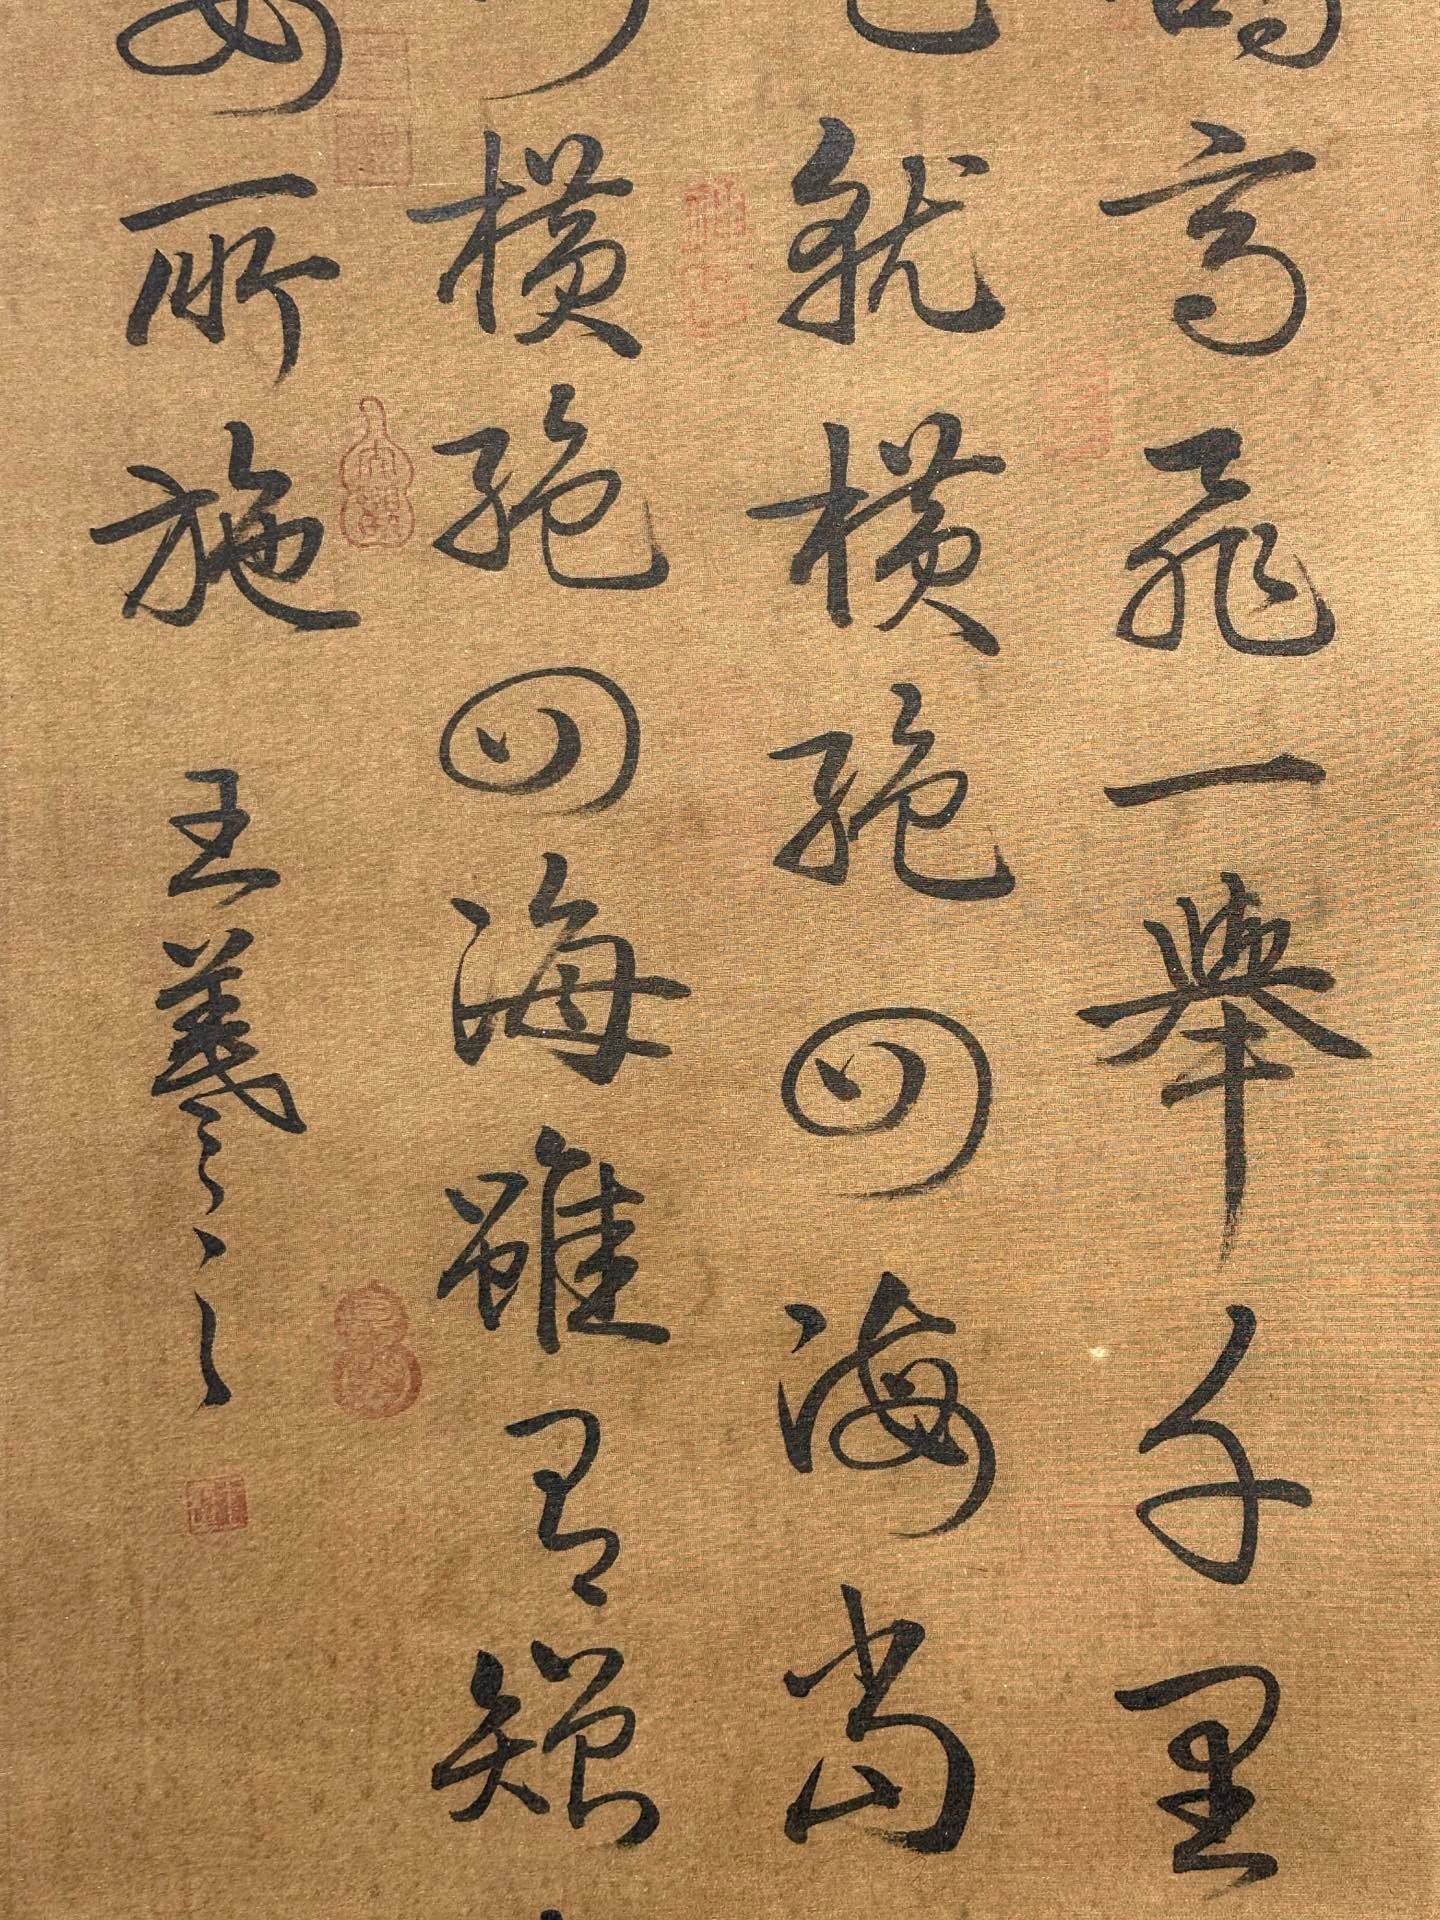 高飛一舉千里
已就橫絕四海當
橫絕四海雖有矰
安所施
王羲之